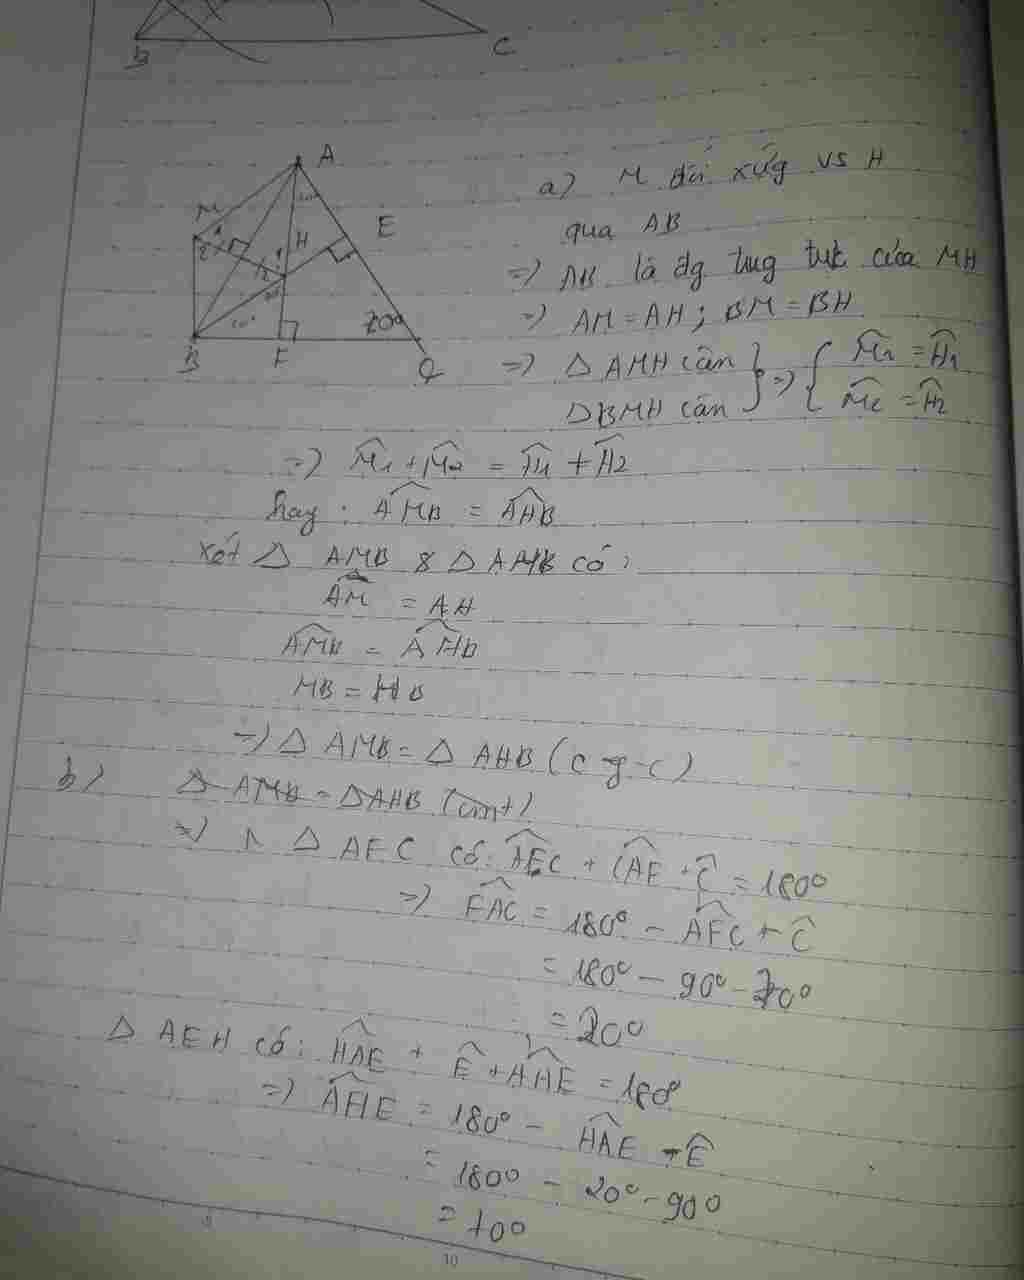 B
C
A
M
E
H
1
2
1
2
20°
70°
B
F
C
a) M đối xứg vs H
qua AB
=> AB là đg tug tực của MH
=> AM = AH ; BM = BH
=> Δ AMH cân } => { M̂1 = Ĥ1
ΔBMH cân M̂2 = Ĥ2
=> M̂1 + M̂2 = Ĥ1 + Ĥ2
hay : AMB = AHB
Xét Δ AMB & Δ AHB có :
AM = AH
AMB = AHB
MB = HB
=> Δ AMB = Δ AHB (c-g-c)
b) Δ AMB = ΔAHB (cmt)
=> Δ AFC có: AFC + CAF + Ĉ = 180°
=> FAC = 180° - AFC + Ĉ
= 180° - 90° - 70°
= 20°
Δ AEH có: HAE + Ê + AHE = 180°
=> AHE = 180° - HAE - Ê
= 180° - 20° - 90°
= 70°
10